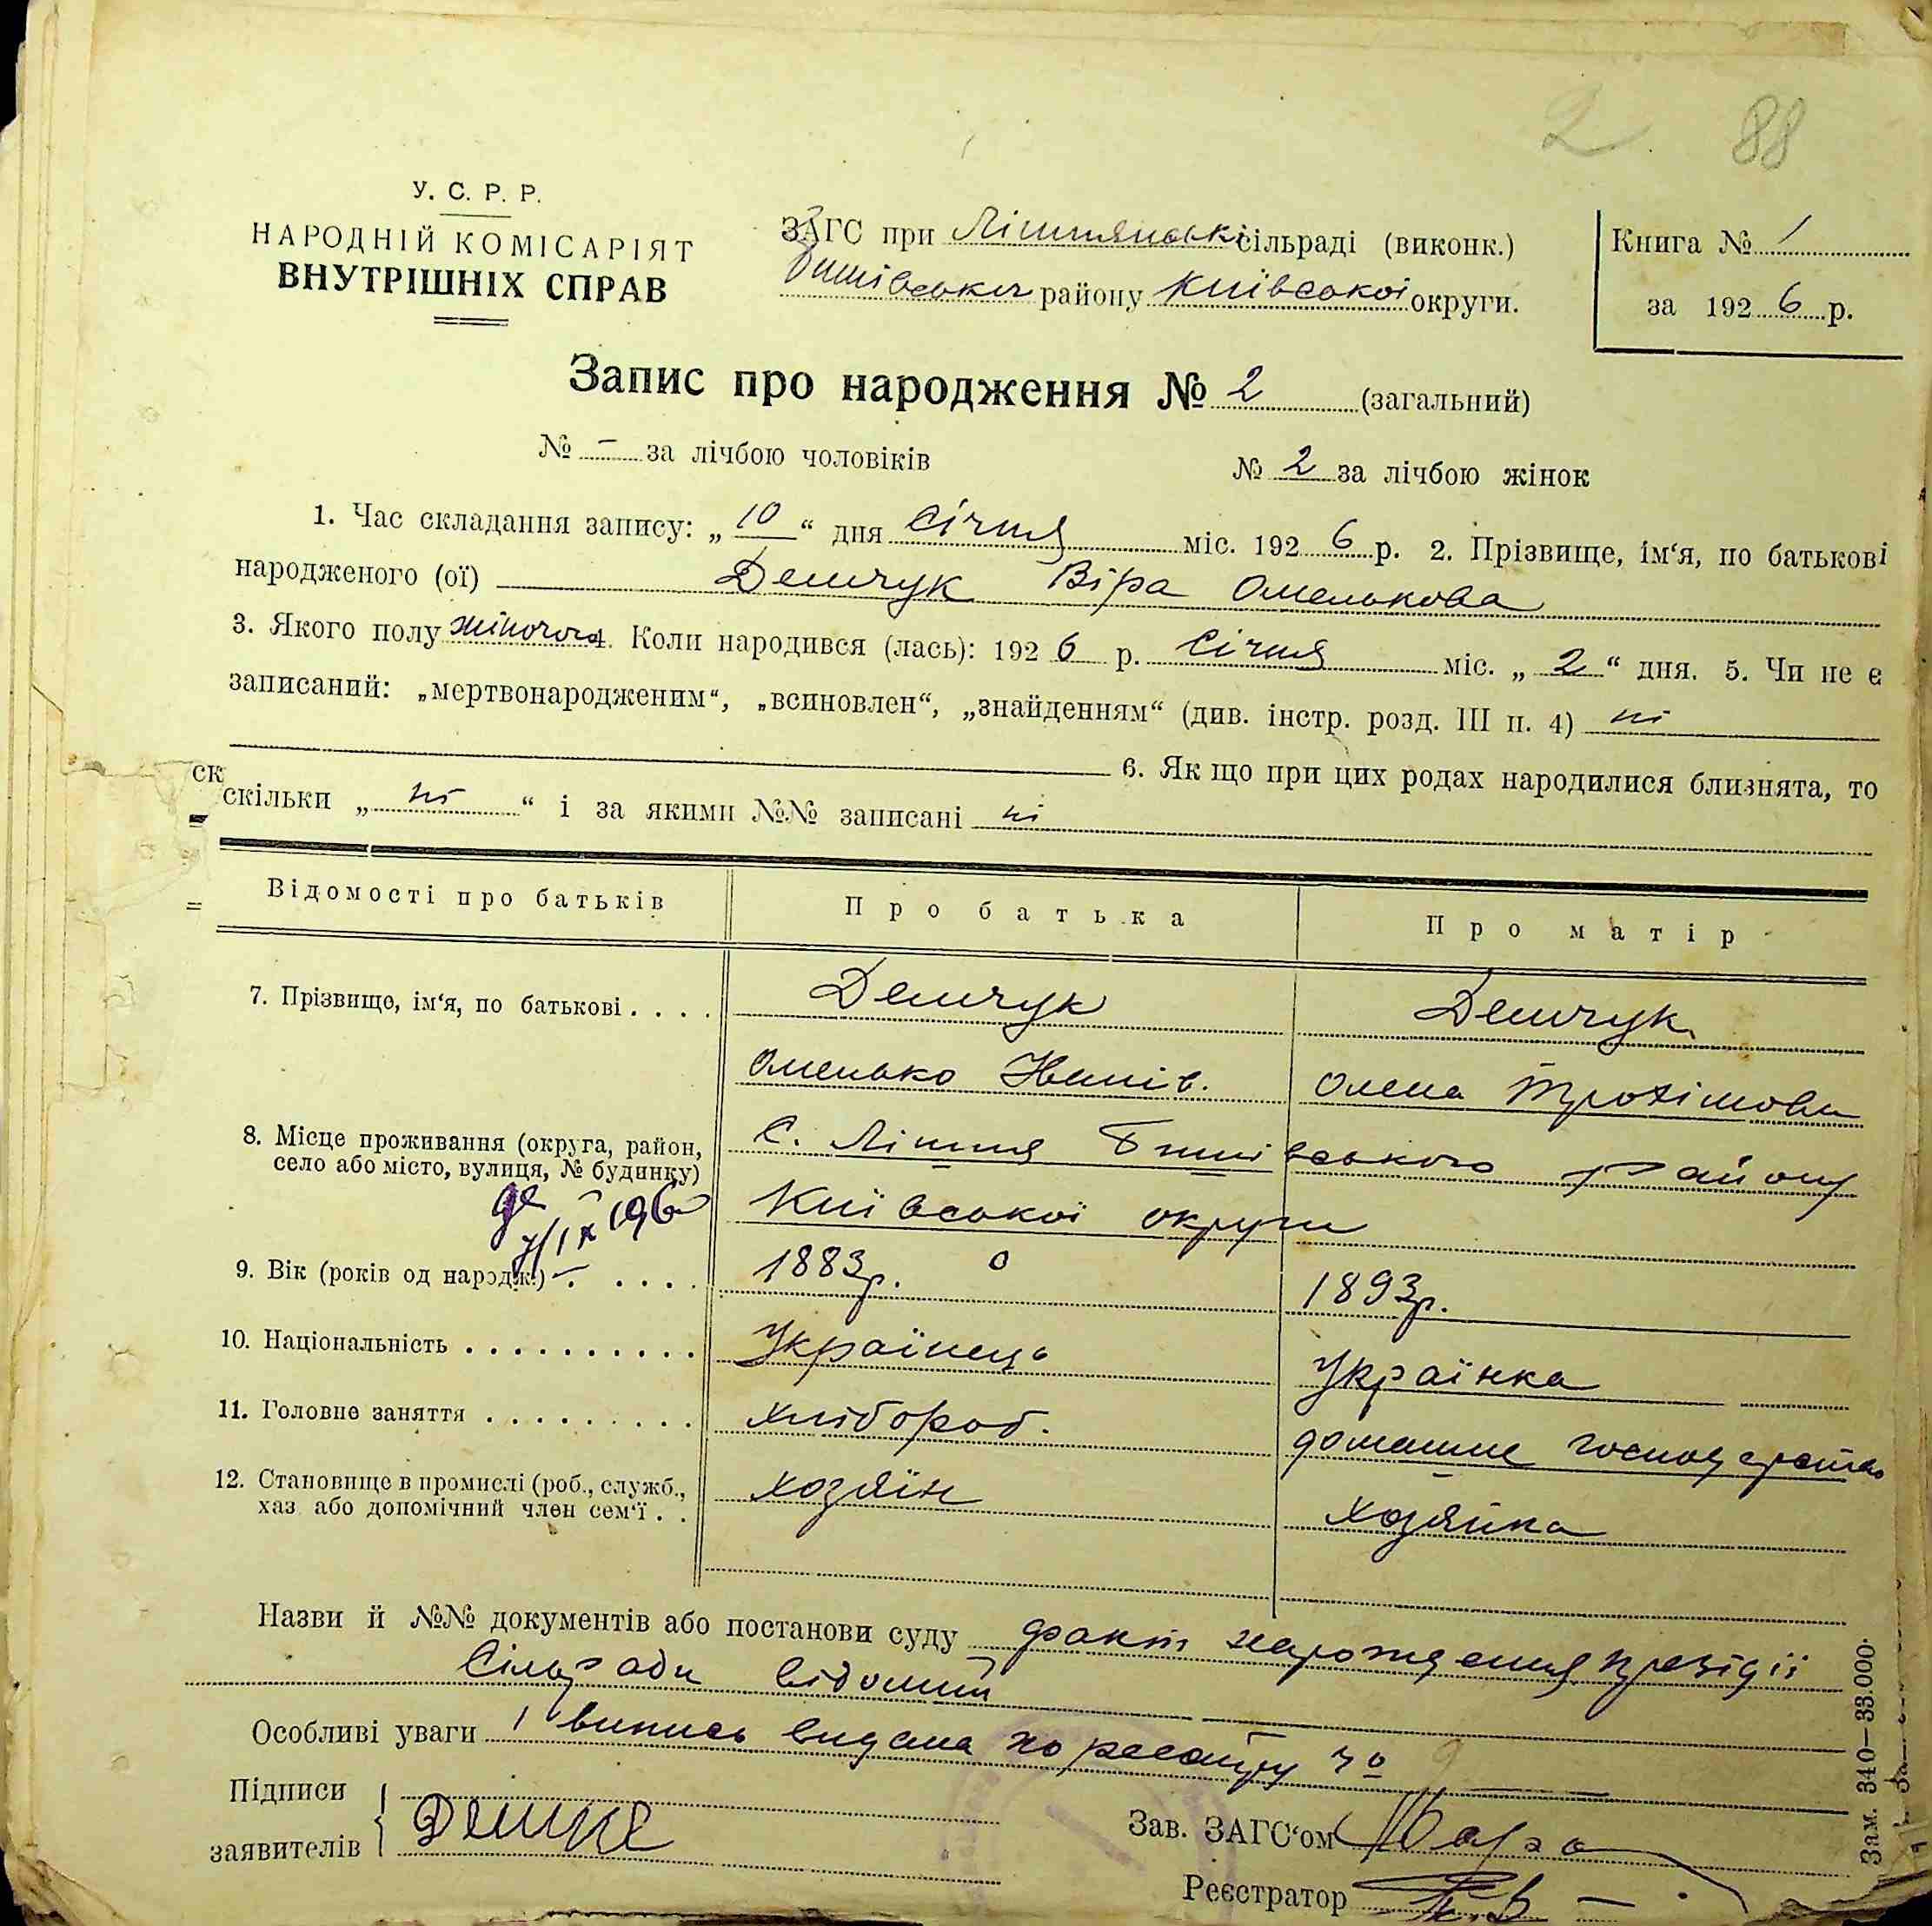 2 88
У. С. Р. Р.
НАРОДНІЙ КОМІСАРІЯТ
ВНУТРІШНІХ СПРАВ
ЗАГС при Ліпнянські сільраді (виконк.)
району Київської округи.
Книга № 1
за 1926 р.
Запис про народження № 2 (загальний)
№ – за лічбою чоловіків № 2 за лічбою жінок
1. Час складання запису: „10“ дня Січня міс. 1926 р. 2. Прізвище, ім‘я, по батькові
народженого (ої) Демчук Віра Омелькова
3. Якого полу жіночого 4. Коли народився (лась): 1926 р. Січня міс. „2“ дня. 5. Чи не є
записаний: „мертвонародженим“, „всиновлен“, „знайденням“ (див. інстр. розд. III п. 4) ні
6. Як що при цих родах народилися близнята, то
ск
скільки „ні“ і за якими №№ записані ні
Відомості про батьків Про батька Про матір
7. Прізвище, ім‘я, по батькові . . . . Демчук Демчук
Омелько Олена Трохімова
8. Місце проживання (округа, район,
село або місто, вулиця, № будинку)
С. Ліпня Бишівського району
Київської округи
9. Вік (років од народж.) . . . . . 1883р. 1893р.
10. Національність . . . . . . . . . . Українець Українка
11. Головне заняття . . . . . . . . . хлібороб. домашне господарство
12. Становище в промислі (роб., служб.,
хаз або допомічний член сем‘ї . .
хозяїн хозяйка
Назви й №№ документів або постанови суду факт народження презідії
Сільради відомий
Особливі уваги 1 випись видана
Підписи
заявителів
Зав. ЗАГС‘ом
Реєстратор
Зам. 340—33.000.